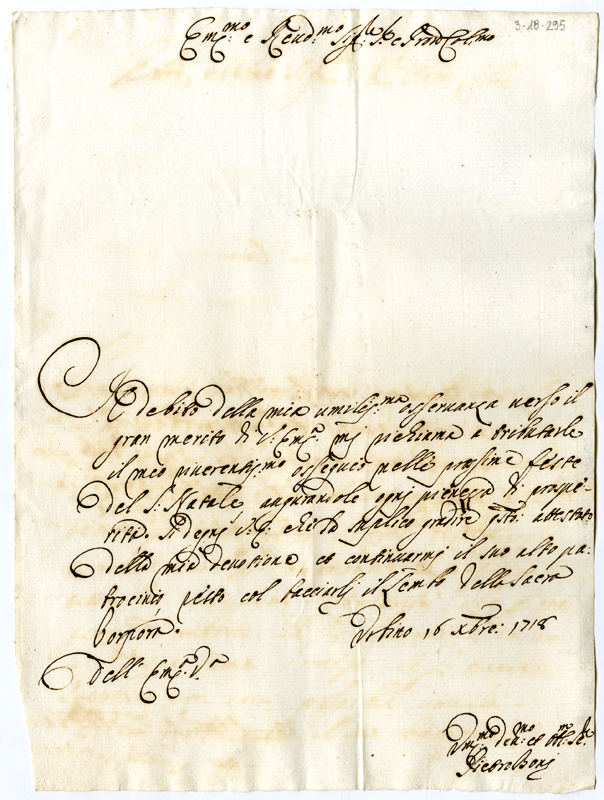 3-18-295
Em.mo e Rend.mo Sig.re S.e e Pron Col.mo
Il debito della mia umiliss.ma osservanza verso il
gran merito di V. Em.a mi richiama a tributarle
il meo riverentiss.mo ossequio nelle prossime feste
del S. Natale, augurandole ogni pienezza di prospe-
rità. Si degni V. E. che la suplico gradire q.sto attestato
della mia devotione, et continuarmi il suo alto pa-
trocinio, resto col bacciarli il Lembo della Sacra
Porpora.
Urbino 16 xbre: 1718
Dell' Em.a V.a
Um.mo Dev.mo et Obl.mo Se.
Pietro Boni